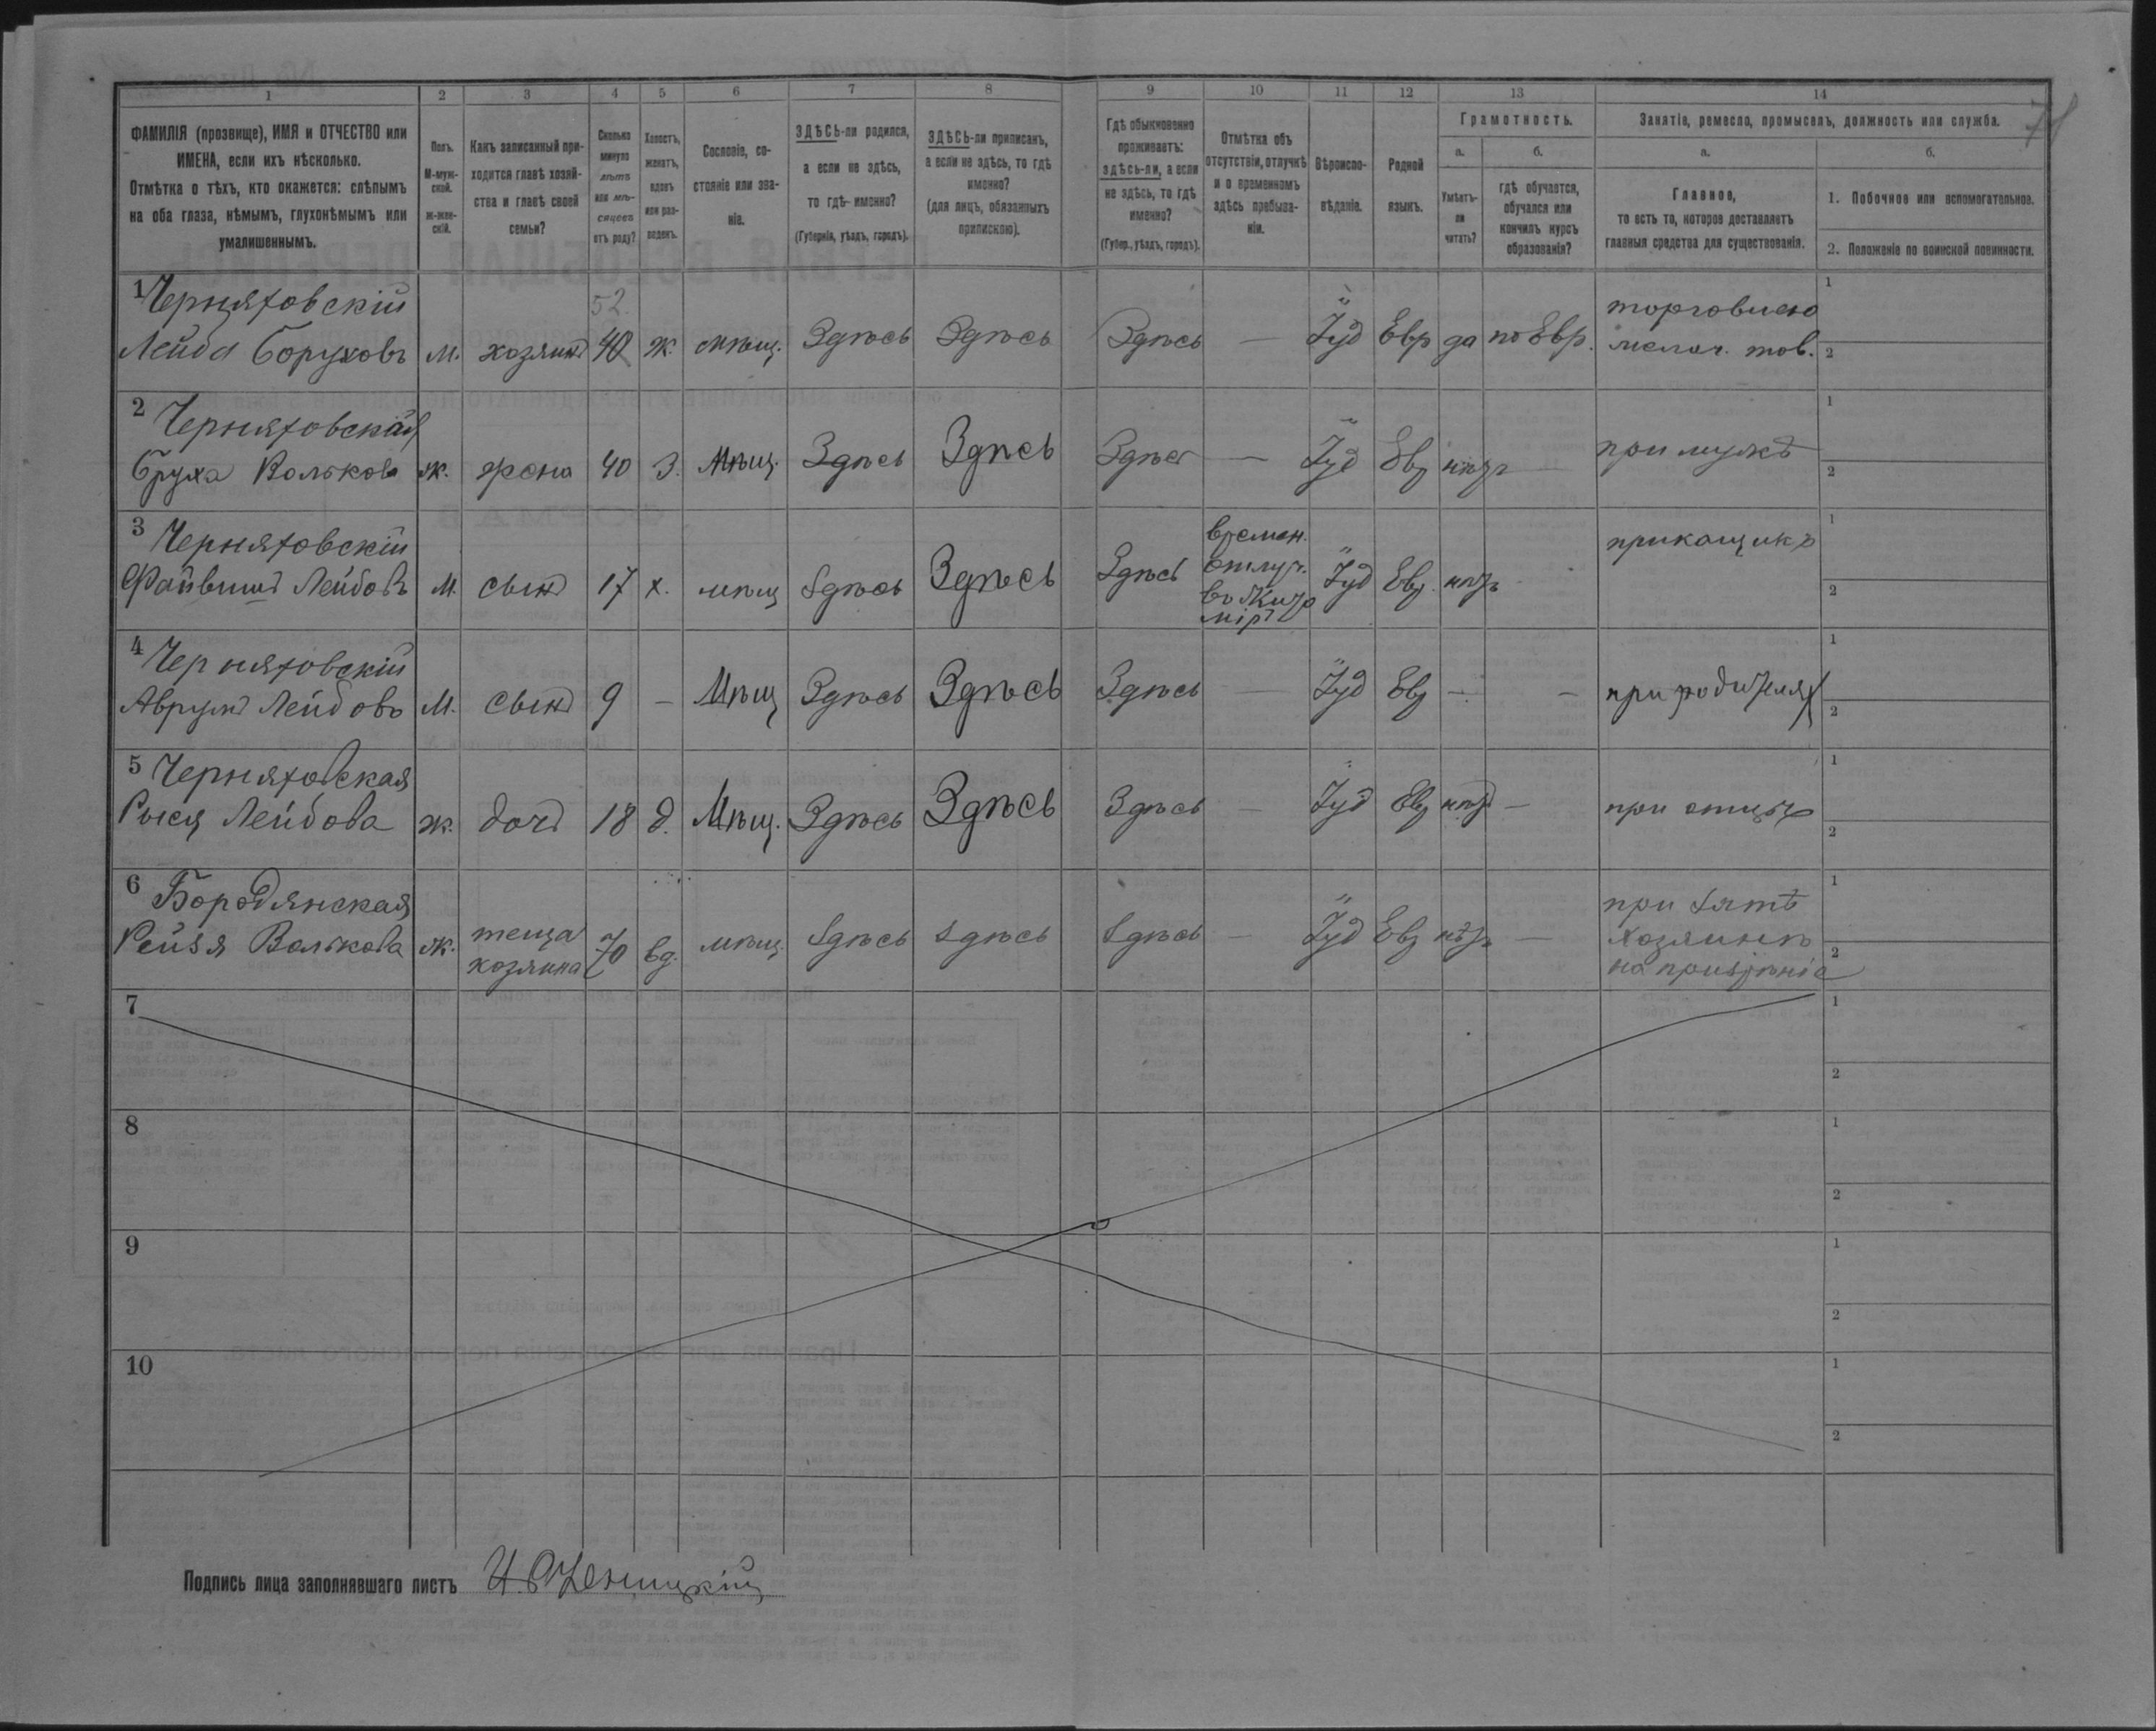 1 2 3 4 5 6 7 8 9 10 11 12 13 14
71
ФАМИЛІЯ (прозвище), ИМЯ и ОТЧЕСТВО или
ИМЕНА, если ихъ нѣсколько.
Отмѣтка о тѣхъ, кто окажется: слѣпымъ
на оба глаза, нѣмымъ, глухонѣмымъ или
умалишеннымъ.
Полъ.
М-муж-
ской.
ж-жен-
скій.
Какъ записанный при-
ходится главѣ хозяй-
ства и главѣ своей
семьи?
Сколько
минуло
лѣтъ
или мѣ-
сяцевъ
отъ роду?
Холостъ,
женатъ,
вдовъ
или раз-
веденъ.
Сословіе, со-
стояніе или зва-
ніе.
ЗДѢСЬ-ли родился,
а если не здѣсь,
то гдѣ именно?
(Губернія, уѣздъ, городъ).
ЗДѢСЬ-ли приписанъ,
а если не здѣсь, то гдѣ
именно?
(для лицъ, обязанныхъ
припискою).
Гдѣ обыкновенно
проживаетъ:
здѣсь-ли, а если
не здѣсь, то гдѣ
именно?
(Губер., уѣздъ, городъ).
Отмѣтка объ
отсутствіи, отлучкѣ
и о временномъ
здѣсь пребыва-
ніи.
Вѣроиспо-
вѣданіе.
Родной
языкъ.
Грамотность.
а.
Умѣетъ-
ли
читать?
б.
гдѣ обучается,
обучался или
кончилъ курсъ
образованія?
Занятіе, ремесло, промыселъ, должность или служба.
а.
Главное,
то есть то, которое доставляетъ
главныя средства для существованія.
б.
1. Побочное или вспомогательное.
2. Положеніе по воинской повинности.
1 Черняховскій 52 торговлею 1
Лейба Боруховъ м. хозяинъ 40 ж. мѣщ. Здѣсь Здѣсь Здѣсь — Іуд Евр да по Евр. мелоч. тов. 2
2 Черняховская 1
Бруха Волькова ж. жена 40 З. Мѣщ. Здѣсь Здѣсь Здѣсь — Іуд Евр нѣтъ — при мужѣ 2
3 Черняховскій времен. прикащикъ 1
Файвишъ Лейбовъ м. сынъ 17 х. мѣщ Здѣсь Здѣсь Здѣсь отлуч. Іуд Евр. нѣтъ 2
въ Жито
мірѣ
4 Черняховскій 1
Аврумъ Лейбовъ м. сынъ 9 — Мѣщ Здѣсь Здѣсь Здѣсь — Іуд Евр — — при родителях 2
5 Черняховская 1
Рыся Лейбова ж. дочь 18 д. Мѣщ. Здѣсь Здѣсь Здѣсь — Іуд Евр нѣтъ — при отцѣ 2
6 Бородянская при зятѣ 1
Рейзя Волькова ж. теща 70 вд. мѣщ. Здѣсь здѣсь Здѣсь — Іуд Евр нѣтъ — хозяинѣ 2
хозяина на призрѣніе
7 1
2
8 1
2
9 1
2
10 1
2
Подпись лица заполнявшаго листъ